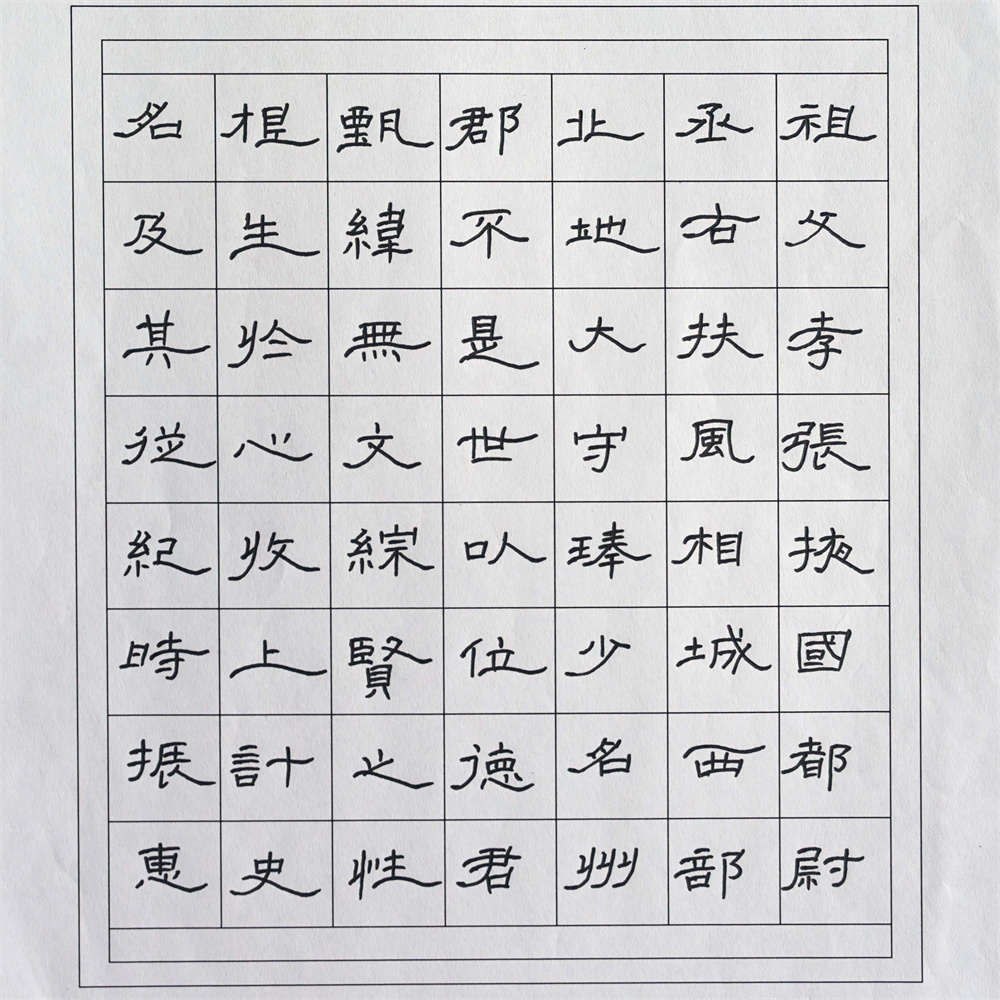 祖父孝張掖國都尉
丞右扶風相城西部
北地大守琫少名州
郡不是世以位德君
甄緯無文綜賢之性
根生於心收上計史
名及其從紀時振恵